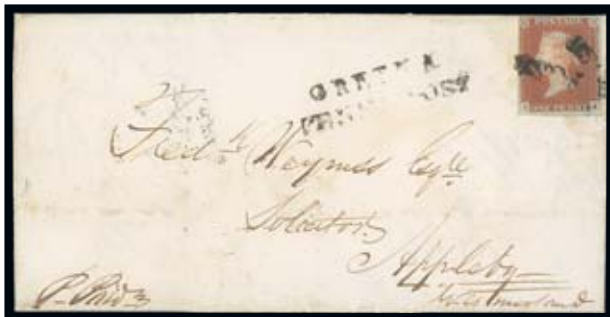 POSTAGE
GRETNA
PENNY POST
Fredk. Waymss Esqre
Solicitor
Appleby
Westmorland
P. Paid